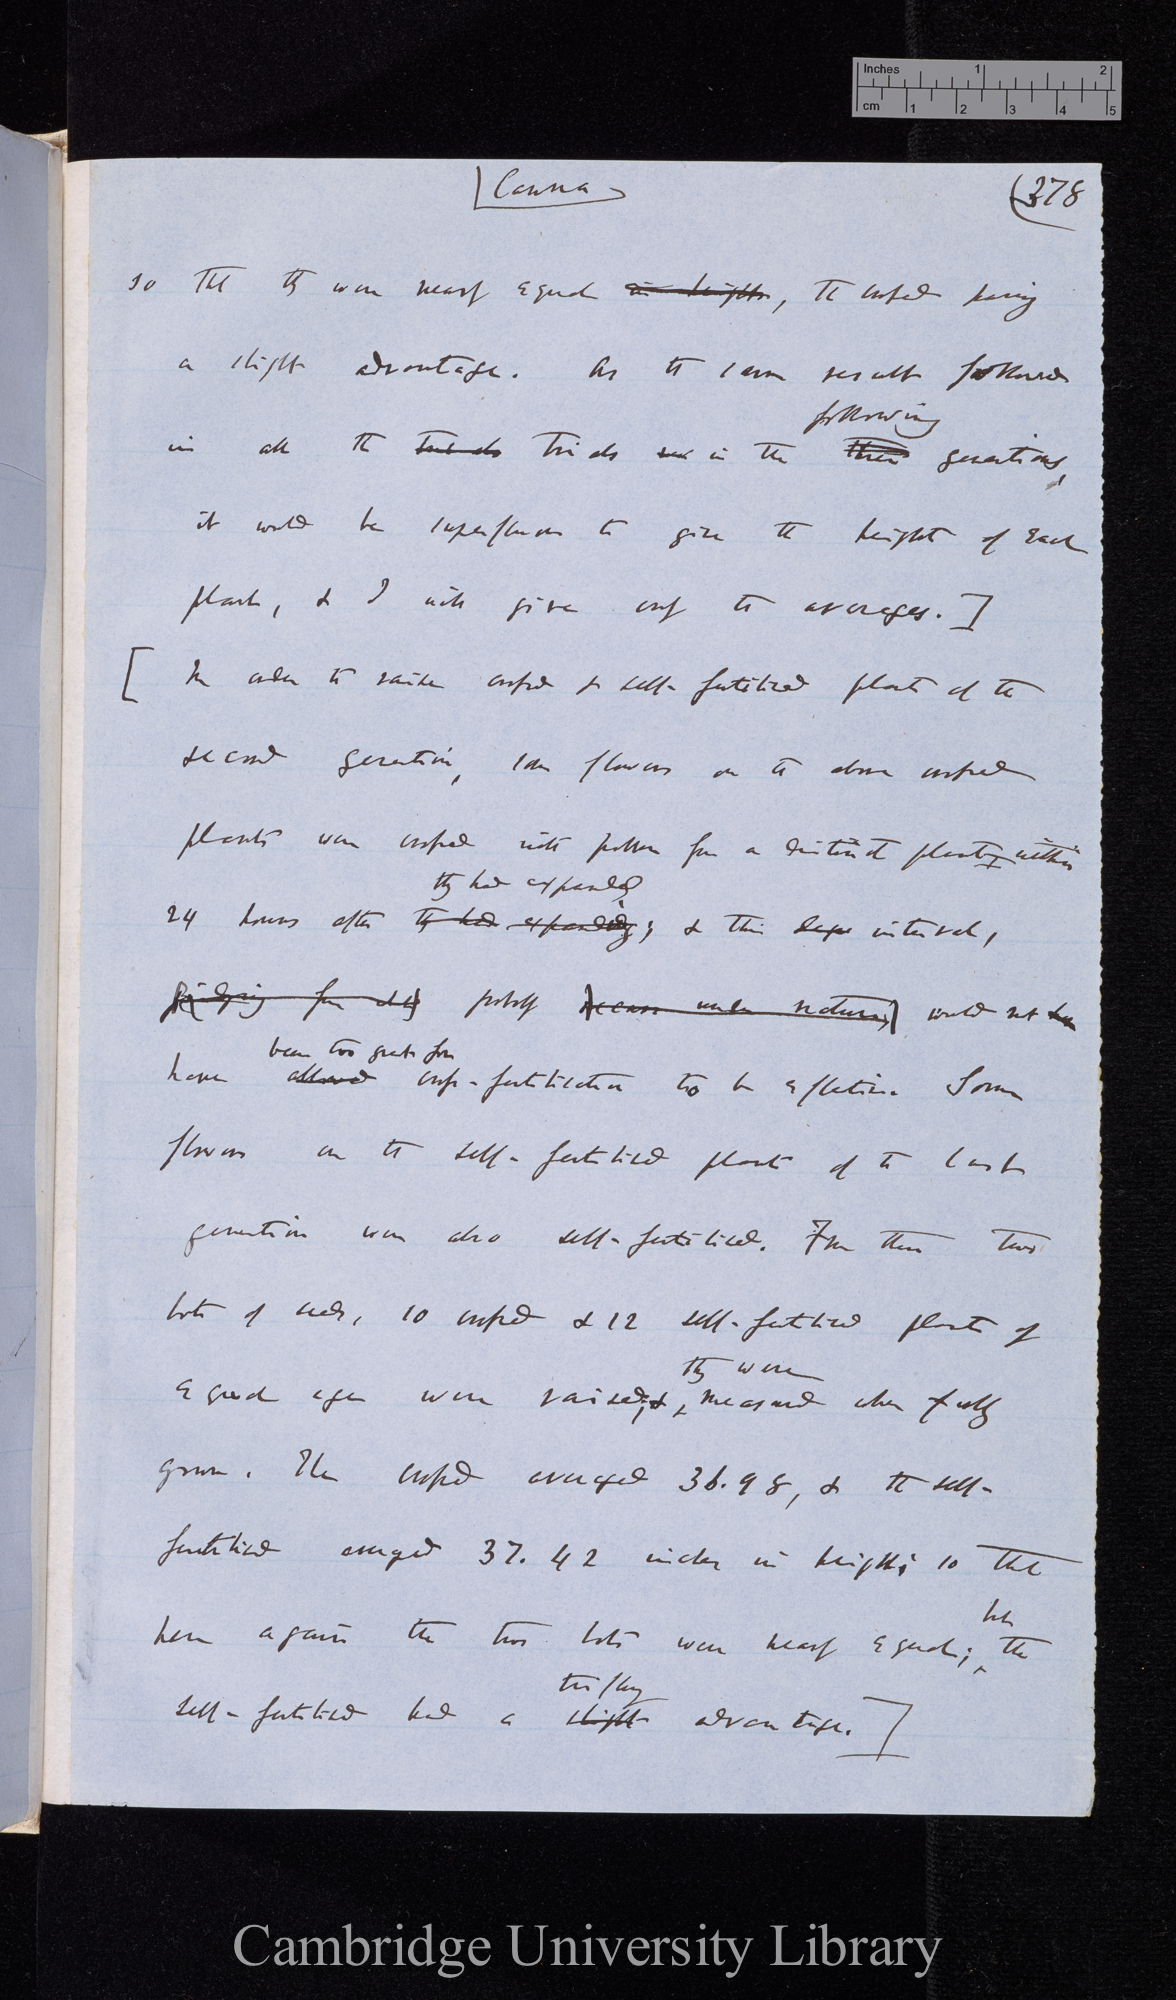 Inches 1 2
cm 1 2 3 4 5
Canna
(378
so that they were nearly equal in height, the crossed having
a slight advantage. As the same result followed
following
in all the trials trials in the these generations,
it would be superfluous to give the height of each
plant, & I will give only the averages.]
[In order to raise crossed & self-fertilised plants of the
second generation, some flowers on the above crossed
plants were crossed with pollen from a distinct plant, within
they had expanded
24 hours after they had expanded; & this interval,
(judging from probably under nature) would not
been too great for
have allowed cross-fertilisation to be effective. Some
flowers on the self-fertilised plants of the last
generation were also self-fertilised. From these two
lots of seeds, 10 crossed & 12 self-fertilised plants of
they were
equal age were raised; & measured when fully
grown. The crossed averaged 36.98, & the self-
fertilised averaged 37.42 inches in height; so that
but
here again the two lots were nearly equal; the
trifling
self-fertilised had a slight advantage.]
Cambridge University Library